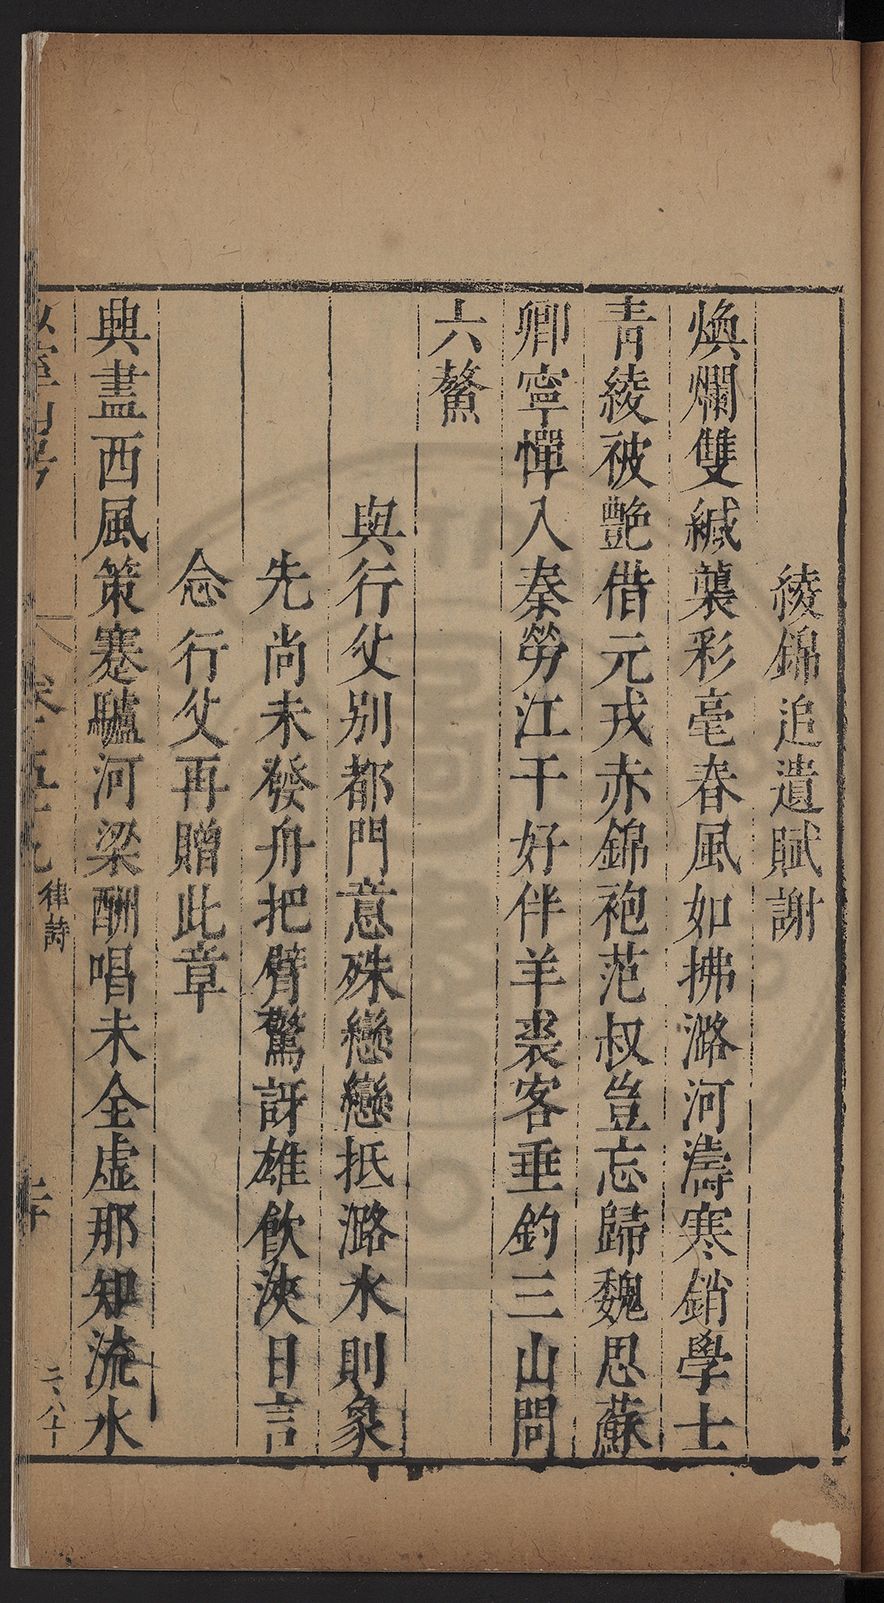 綾錦追遺賦謝
煥爛雙緘襲彩毫春風如拂潞河濤寒銷學士
青綾被艷借元戎赤錦袍范叔豈忘歸魏思蘇
卿寧憚入秦勞江干好伴羊裘客垂釣三山問
六鰲
與行父别都門意殊戀戀抵潞水則象
先尚未發舟把臂驚訝雄飲浹日言
念行父再贈此章
興盡西風策蹇驢河梁酬唱未全虛那知流水
律詩